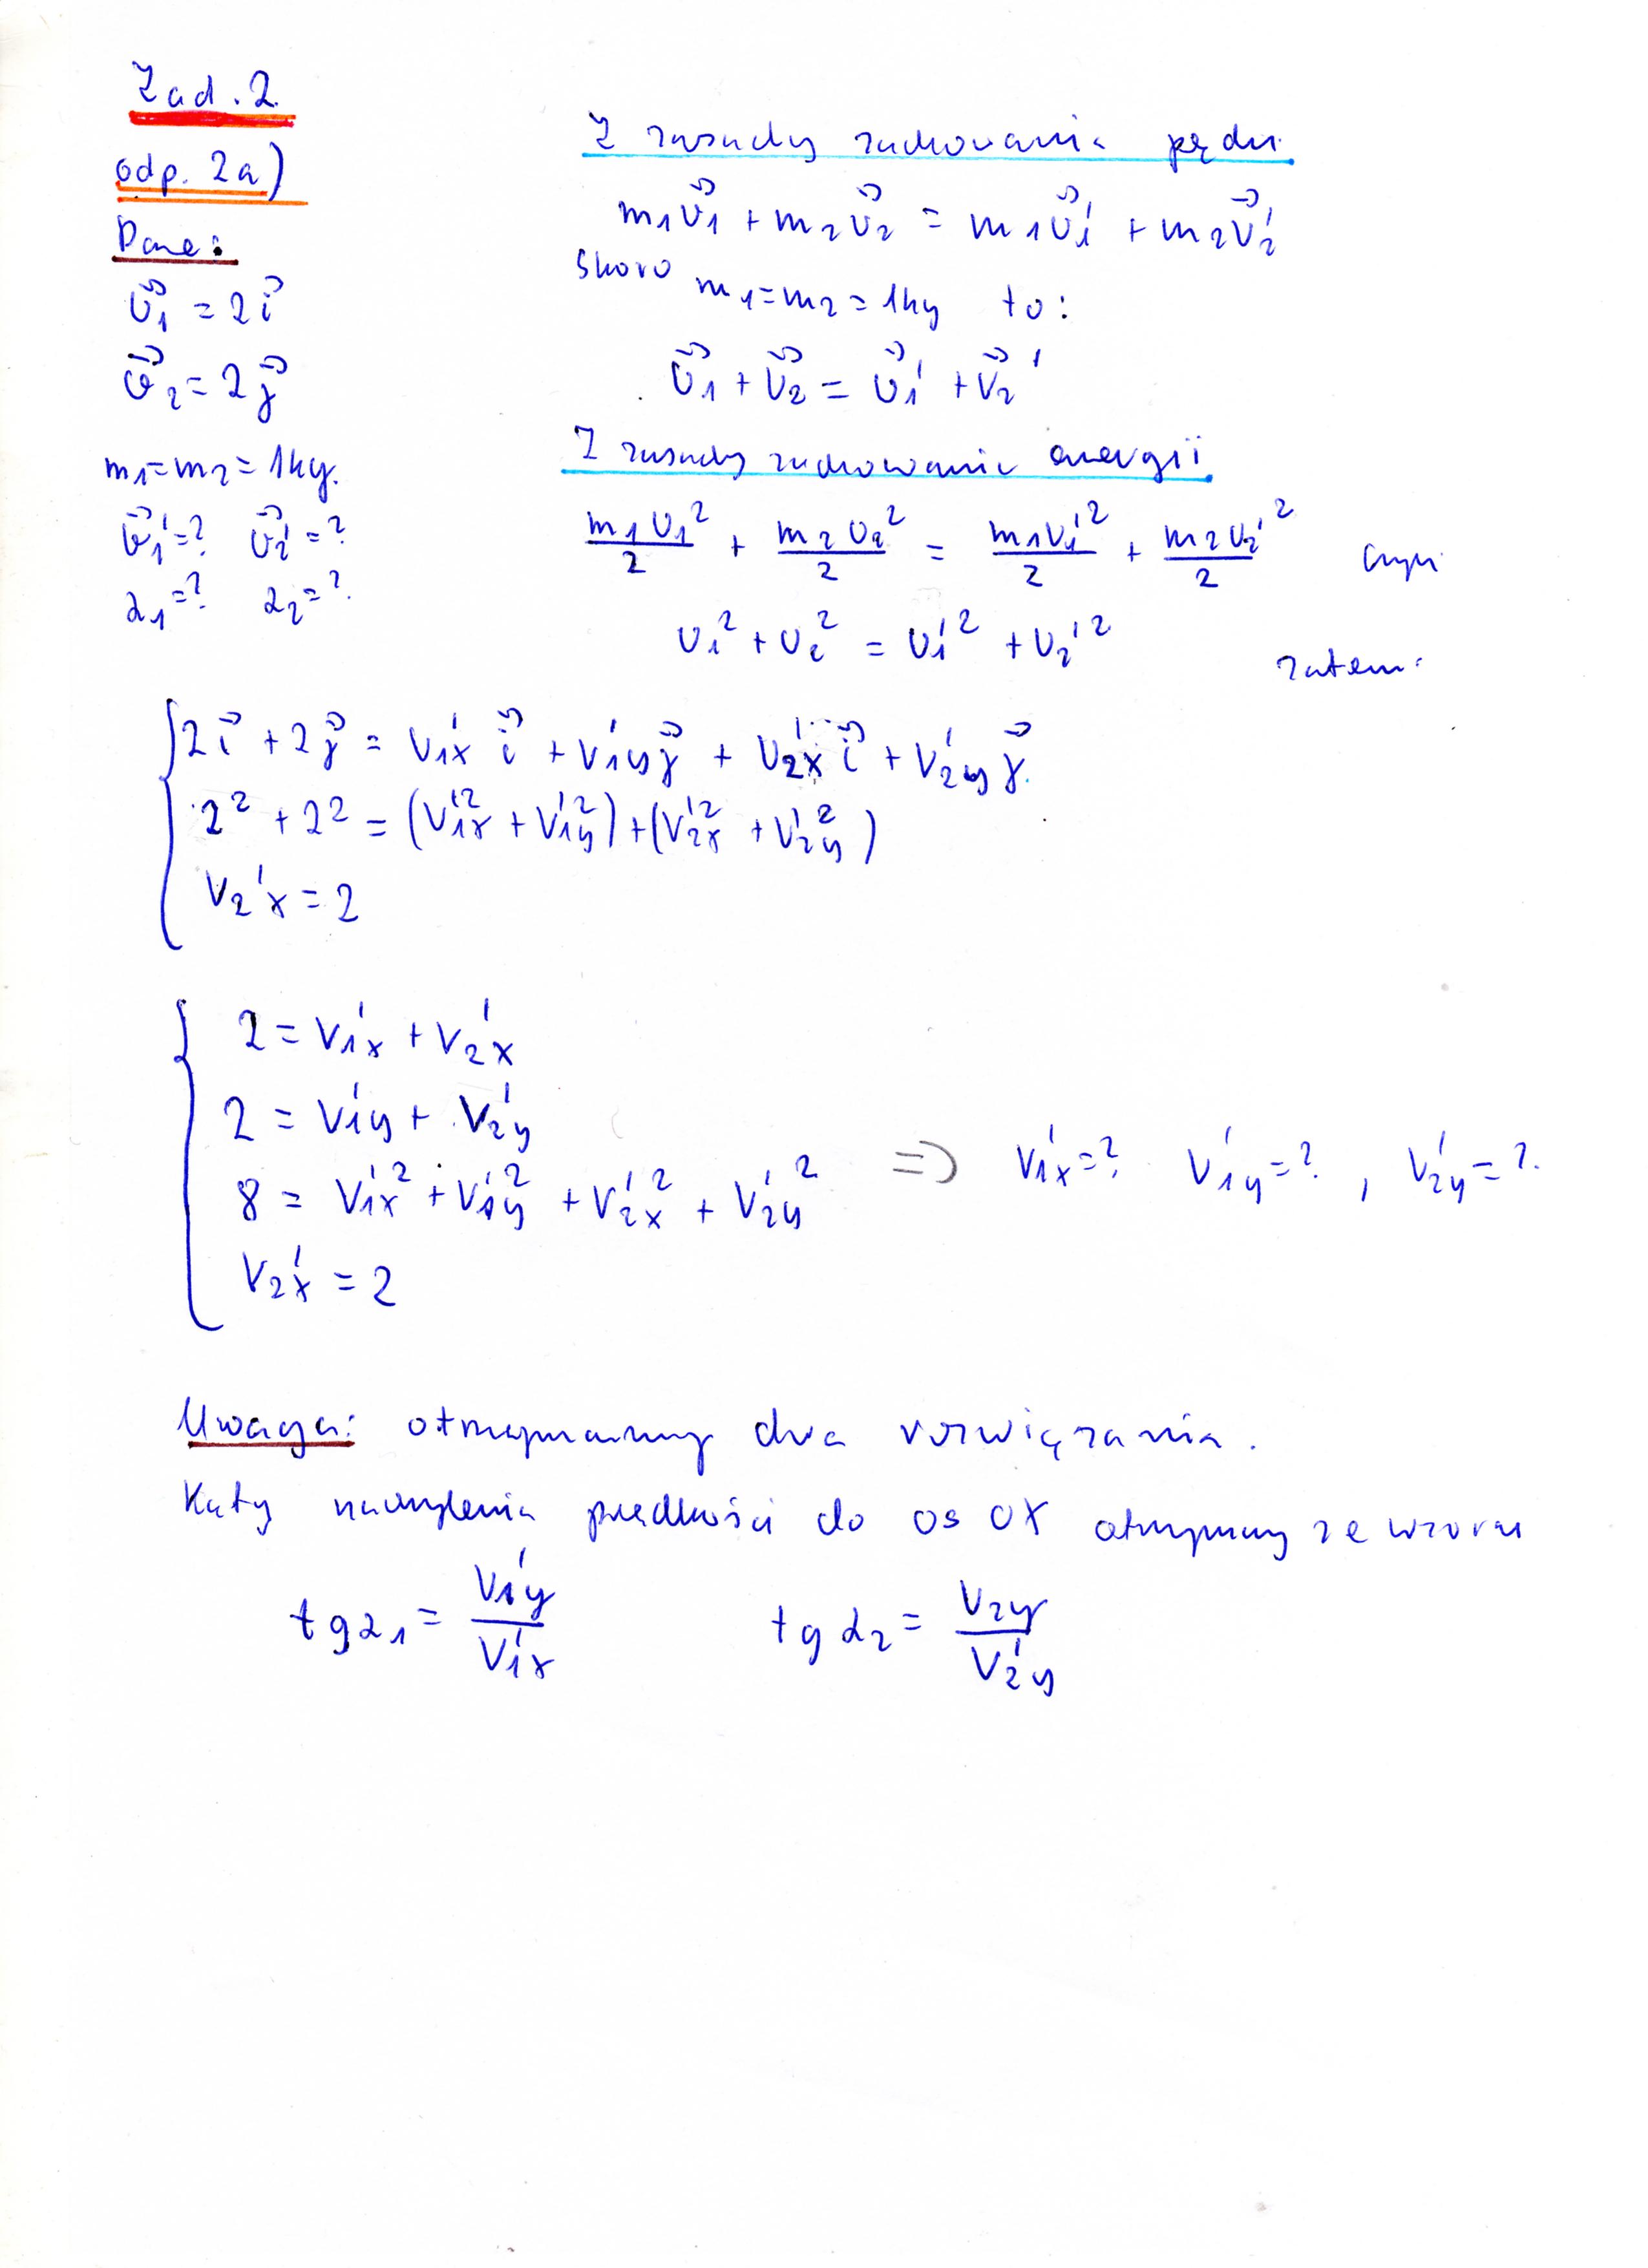 Zad. 2.
odp. 2a)
Dane:
v⃗₁ = 2i⃗
v⃗₂ = 2j⃗
m₁=m₂=1kg.
v⃗₁'=? v⃗₂'=?
α₁=? α₂=?.
Z zasady zachowania pędu.
m₁v⃗₁ + m₂v⃗₂ = m₁v⃗₁' + m₂v⃗₂'
Skoro m₁=m₂=1kg to:
v⃗₁ + v⃗₂ = v⃗₁' + v⃗₂'
Z zasady zachowania energii
m₁v₁²/2 + m₂v₂²/2 = m₁v₁'²/2 + m₂v₂'²/2 czyli
v₁² + v₂² = v₁'² + v₂'²
zatem:
2i⃗ + 2j⃗ = v₁ₓ' i⃗ + v₁y' j⃗ + v₂ₓ' i⃗ + v₂y' j⃗.
2² + 2² = (v₁ₓ'² + v₁y'²) + (v₂ₓ'² + v₂y'²)
v₂'ₓ = 2
2 = v₁ₓ' + v₂ₓ'
2 = v₁y' + v₂y'
8 = v₁ₓ'² + v₁y'² + v₂ₓ'² + v₂y'² => v₁ₓ'=? v₁y'=?, v₂y'=?.
v₂ₓ' = 2
Uwaga: otrzymamy dwa rozwiązania.
Kąty nachylenia prędkości do os OX otrzymamy ze wzoru
tg α₁ = v₁y'/v₁ₓ' tg α₂ = v₂y/v₂y'